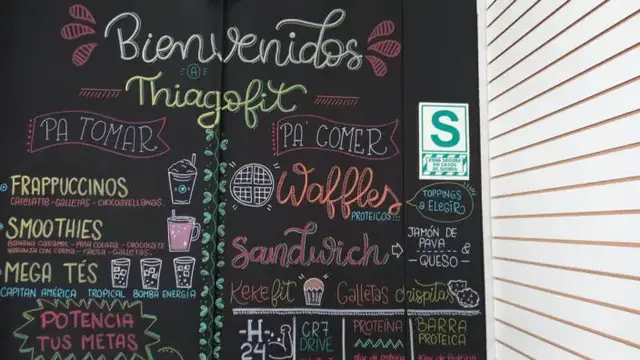 Bienvenidos
A
Thiagofit
PA TOMAR
FRAPPUCCINOS
GALLETAS - CHOCOAVELLANAS
SMOOTHIES
BANANA CARAMEL - PIÑA COLADA - CHOCOLATE
GALLETAS
MEGA TÉS
CAPITÁN AMÉRICA TROPICAL BOMBA ENERGIA
POTENCIA
TUS METAS
PA' COMER
Waffles
PROTEICOS...
TOPPINGS
A ELEGIR
Sandwich
JAMÓN DE
PAVA
&
QUESO
Kekefit
Galletas crispitas
-H-
24
CR7
DRIVE
PROTEÍNA
BARRA
PROTEICA
S
ZONA SEGURA
EN CASOS
DE SISMOS